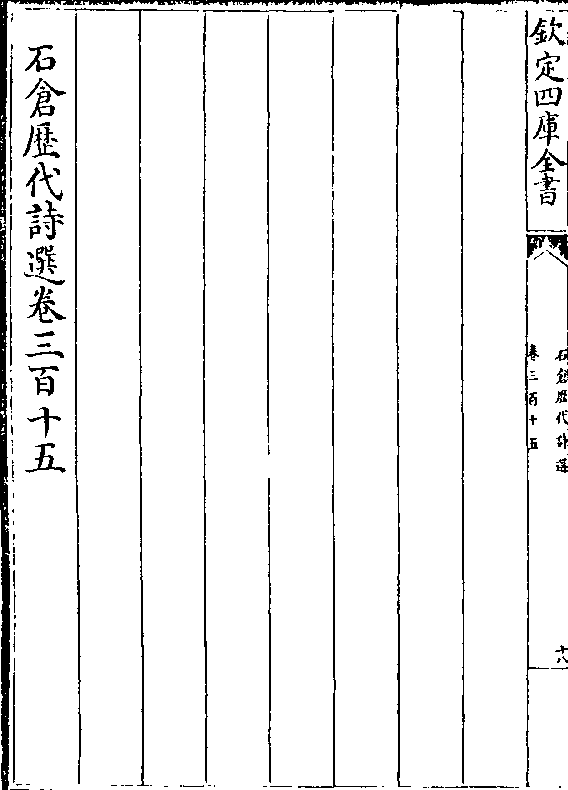 欽定四庫全書
石倉歴代詩選
卷三百十五
十八
石倉歴代詩選卷三百十五